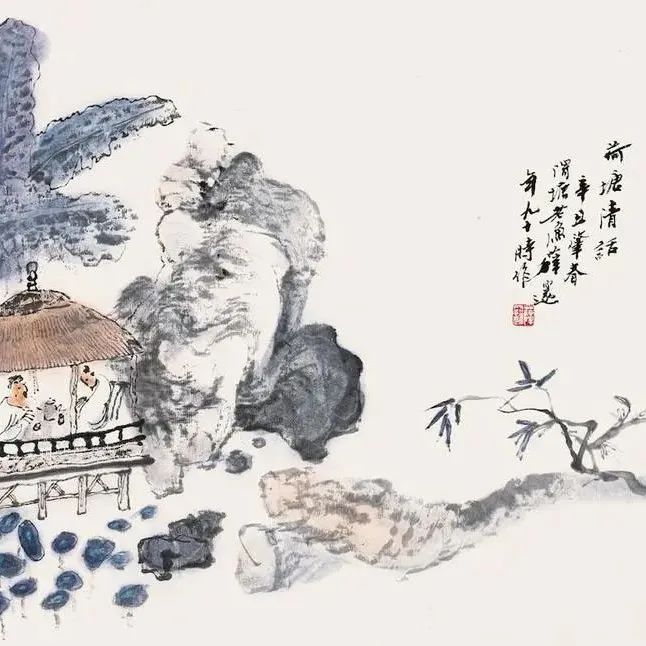 荷塘清話
辛丑肇春
渭塘老漁薛邁
年九十時作